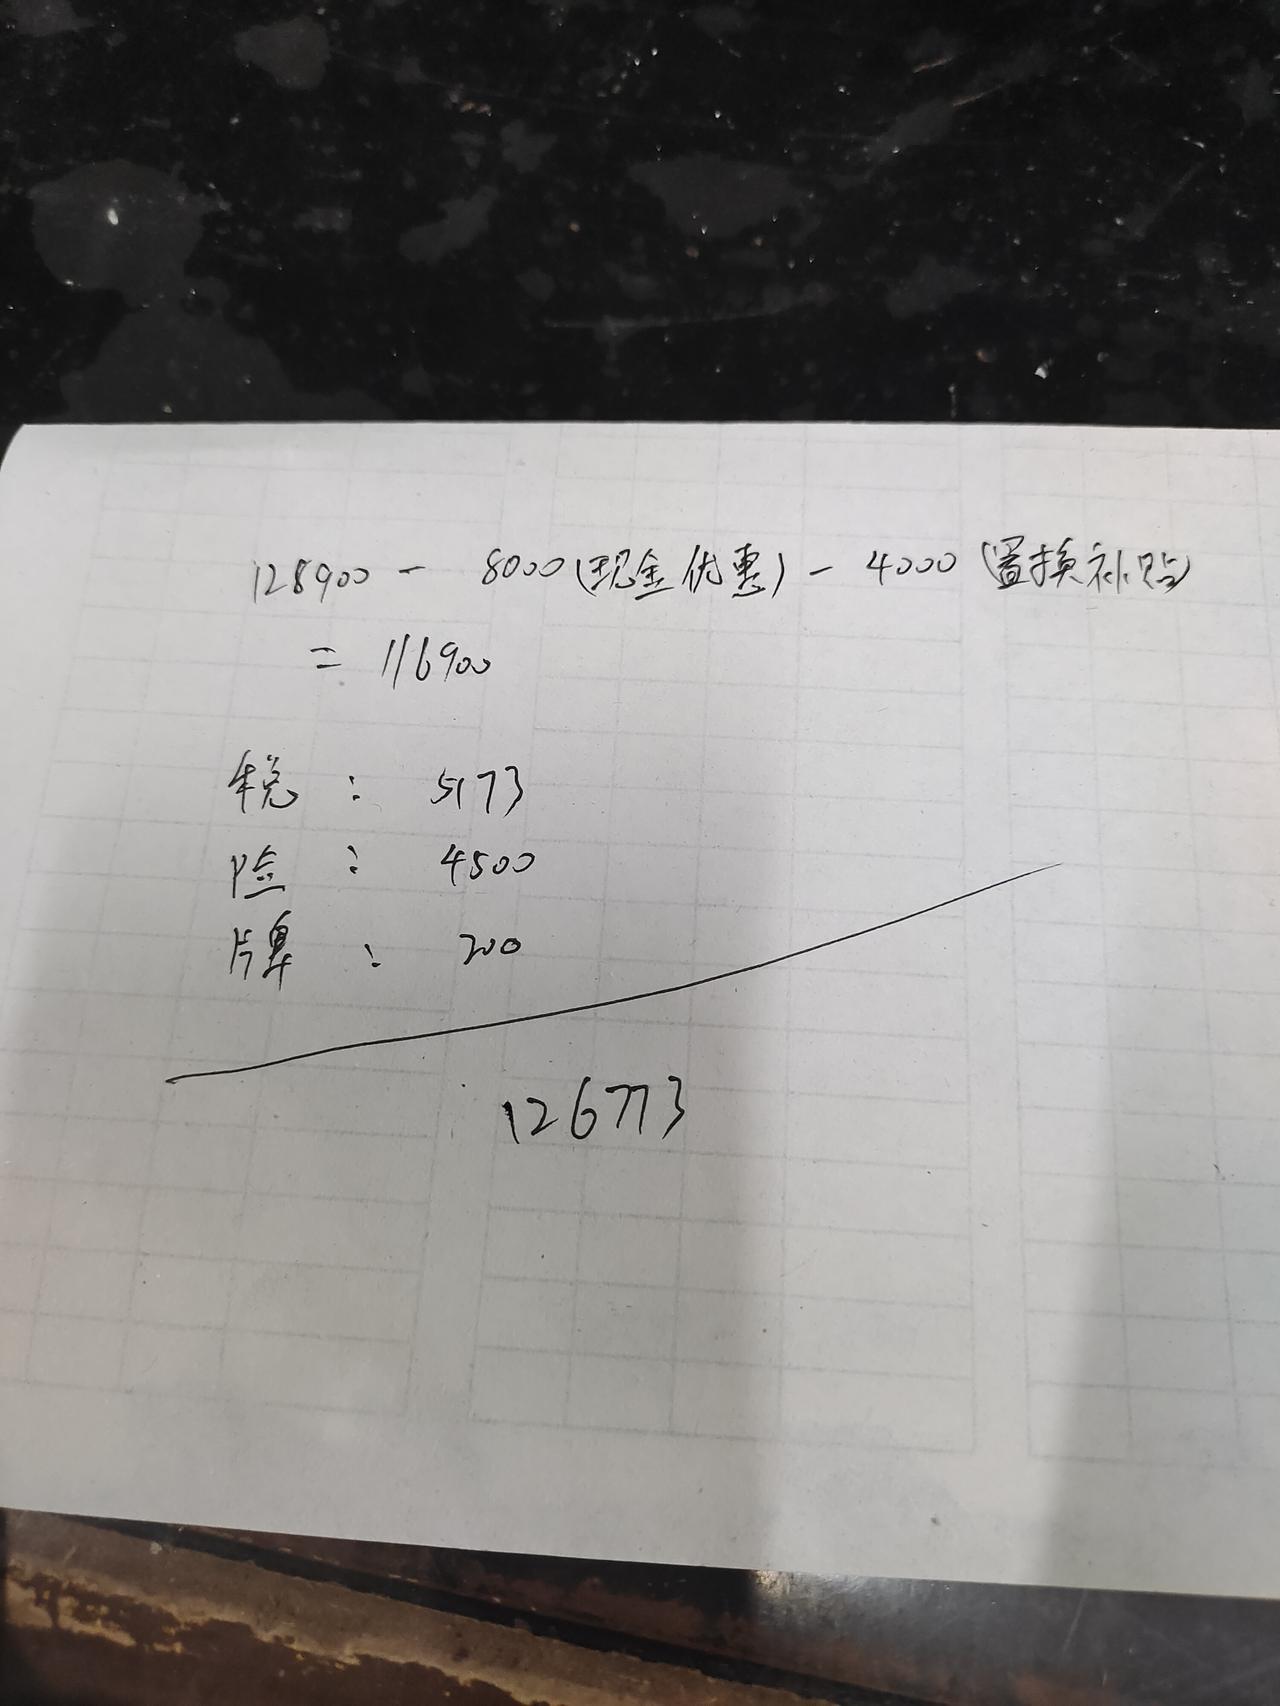 128900 - 8000(现金优惠) - 4000(置换补贴)
= 116900
税: 5173
险: 4500
牌: 200
126773